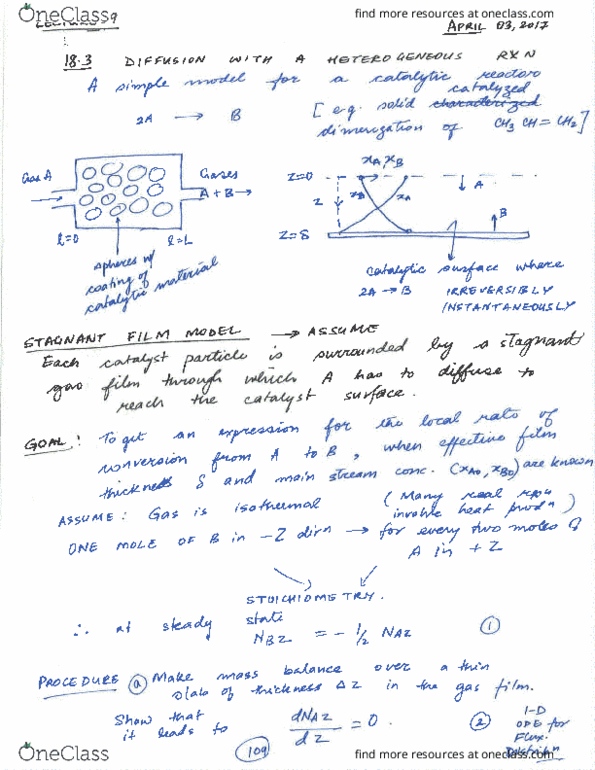 OneClass
find more resources at oneclass.com
LECTURE 9
APRIL 03, 2017
18.3 DIFFUSION WITH A HETEROGENEOUS RXN
A simple model for a catalytic reactor
2A → B
[e.g. solid characterized catalyzed
dimerization of CH3 CH = CH2]
Gas A
Gases
A + B →
l=0
l=L
spheres w/
coating of
catalytic material
xA xB
z=0
z
xB
xA
A
B
z=δ
catalytic surface where
2A → B IRREVERSIBLY
INSTANTANEOUSLY
STAGNANT FILM MODEL → ASSUME
Each catalyst particle is surrounded by a stagnant
gas film through which A has to diffuse to
reach the catalyst surface.
GOAL: To get an expression for the local rate of
conversion from A to B, when effective film
thickness δ and main stream conc. (xA0, xB0) are known
ASSUME: Gas is isothermal
(Many real rxns
involve heat prodn)
ONE MOLE OF B in -Z dirn → for every two moles of
A in + Z
STOICHIOMETRY.
∴ at steady state
NBZ = - 1/2 NAZ ①
PROCEDURE ⓐ Make mass balance over a thin
slab of thickness ΔZ in the gas film.
Show that
it leads to
dNAZ/dZ = 0. ②
1-D
ODE for
Flux
Distribn
109
OneClass
find more resources at oneclass.com